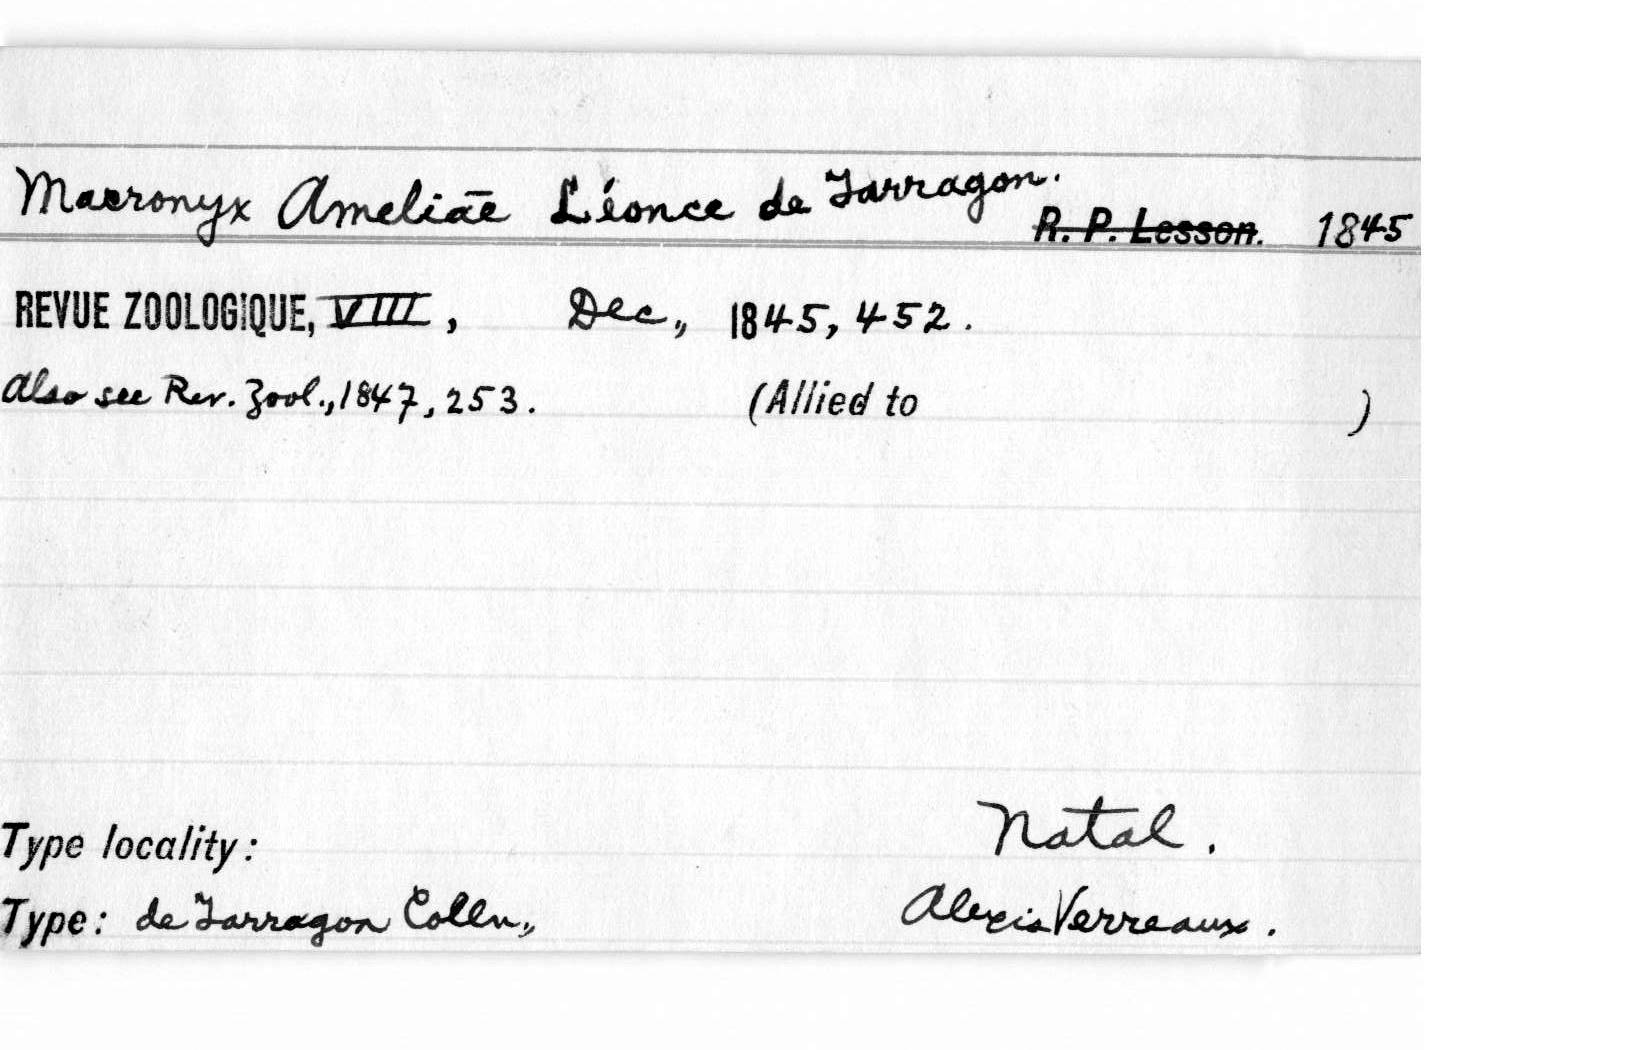 Macronyx Ameliae Léonce de Tarragon. R. P. Lesson. 1845
REVUE ZOOLOGIQUE, VIII, Dec., 1845, 452.
Also see Rev. Zool., 1847, 253. (Allied to )
Type locality: Natal.
Type: de Tarragon Colln., Alexis Verreaux.